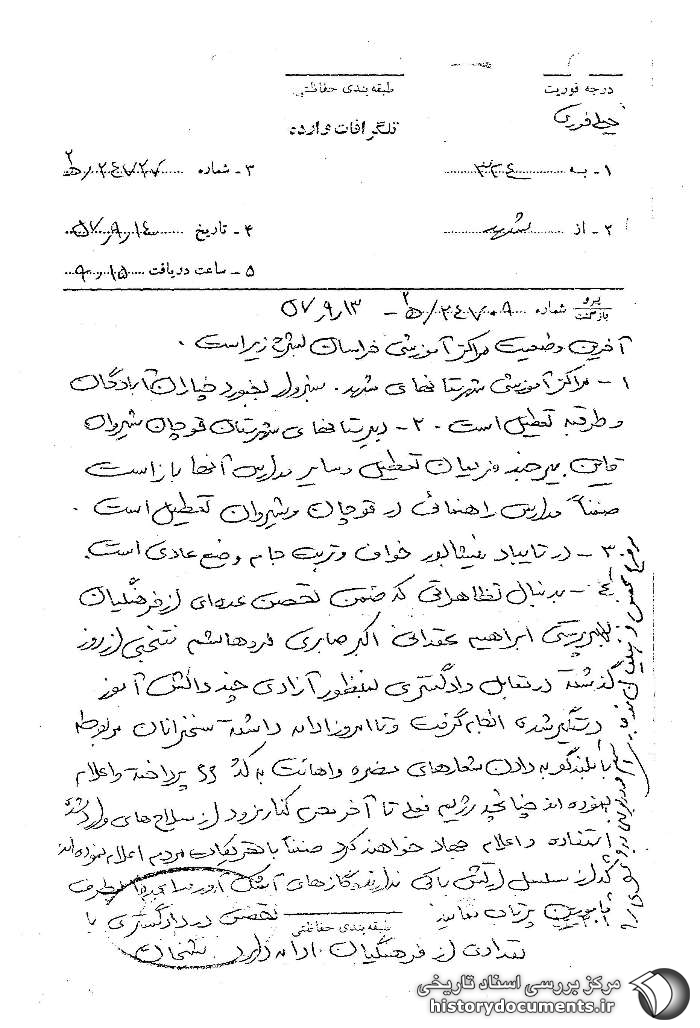 درجه فوریت
طبقه‌بندی حفاظتی
خیلی فوری
تلگرافات وارده
۱- به ۳۲۴
۳- شماره ۲۴۷۲۷/ه‍ ۲
۲- از مشهد
۴- تاریخ ۵۷٫۹٫۱۴
۵- ساعت دریافت ۹۰۱۵
پیرو بازگشت شماره ۲۴۷۰۹/ه‍ ۲ - ۵۷٫۹٫۱۳
آخرین وضعیت مراکز آموزشی خراسان بشرح زیر است .
۱- مراکز آموزشی شهرستانهای مشهد. سبزوار بجنورد چناران آزادگان
و طرقبه تعطیل است . ۲- دبیرستانهای شهرستان قوچان شیروان
قاین بیرجند فریمان تعطیل و سایر مدارس آنها باز است
ضمناً مدارس راهنمائی در قوچان و شیروان تعطیل است .
۳- در تایباد نیشابور خواف و تربت جام وضع عادی است .
۴- بدنبال تظاهراتی که ضمن تحصن عده‌ای از فرهنگیان
بسرپرستی ابراهیم اکبر صابری فرد هاشم منتخبی از روز
گذشته در مقابل دادگستری بمنظور آزادی چند دانش آموز
دستگیر شده انجام گرفت و تا امروز ادامه داشته سخنرانان مربوطه
با بلندگو به دادن شعارهای مضره و اهانت به پرداخته و اعلام
نموده اند چنانچه رژیم فعلی تا آخر کنار نرود از سلاح های وارد شده
استفاده و اعلام جهاد خواهند کرد ضمناً به مردم اعلام نموده اند
که از مسلسل ارتش باکی ندارند و گازهای آشک آور را بطرف
مامورین پرتاب نمایند تحصن در دادگستری با
طبقه‌بندی حفاظتی
تعدادی از فرهنگیان ادامه دارد.
مرکز بررسی اسناد تاریخی
historydocuments.ir